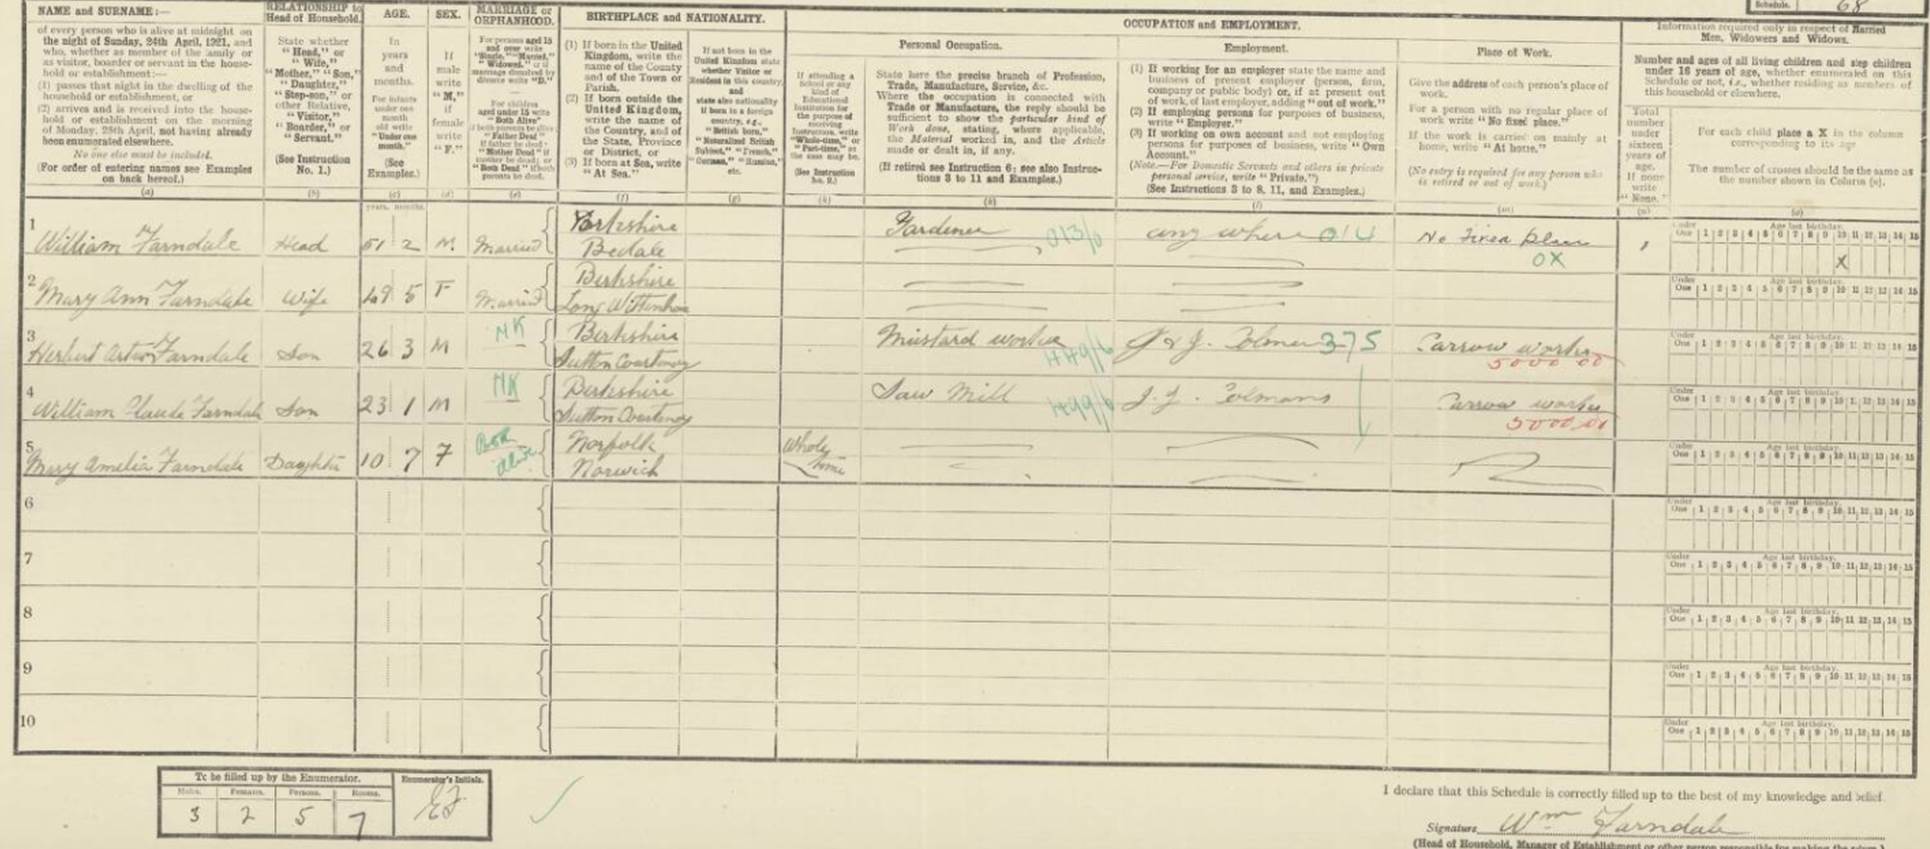 Schedule. 68
NAME and SURNAME:—
of every person who is alive at midnight on
the night of Sunday, 24th April, 1921, and
who, whether as member of the family or
as visitor, boarder or servant in the house-
hold or establishment:—
(1) passes that night in the dwelling of the
household or establishment, or
(2) arrives and is received into the house-
hold or establishment on the morning
of Monday, 25th April, not having already
been enumerated elsewhere.
No one else must be included.
(For order of entering names see Examples
on back hereof.)
(a)
RELATIONSHIP to
Head of Household.
State whether
"Head," or
"Wife,"
"Mother," "Son,"
"Daughter,"
"Step-son," or
other Relative,
"Visitor,"
"Boarder," or
"Servant."
(See Instruction
No. 1.)
(b)
AGE.
In
years
and
months.
For infants
under one
month
old write
"Under one
month."
(See
Examples.)
(c)
SEX.
If
male
write
"M,"
if
female
write
"F."
(d)
MARRIAGE or
ORPHANHOOD.
For persons aged 15
and over write
"Single," "Married,"
"Widowed," or if
marriage dissolved by
divorce write "D."
For children
aged under 15 write
"Both Alive"
if both parents be alive
"Father Dead"
"Mother Dead" if
mother be dead; or
"Both Dead" if both
parents be dead.
(e)
BIRTHPLACE and NATIONALITY.
(1) If born in the United
Kingdom, write the
name of the County
and of the Town or
Parish.
(2) If born outside the
United Kingdom,
write the name of
the Country, and of
the State, Province
or District, or
(3) If born at Sea, write
"At Sea."
(f)
If not born in the
United Kingdom state
whether Visitor or
Resident in this country,
and
state also nationality
if born in a foreign
country, e.g.
"British born,"
"Naturalized British
Subject," "French,"
"German," "Russian,"
etc.
(g)
If attending a
School or any
kind of
Educational
Institution for
the purpose of
receiving
Instruction, write
"Whole-time," or
"Part-time," as
the case may be.
(See Instruction
OCCUPATION and EMPLOYMENT.
Personal Occupation.
State here the precise branch of Profession,
Trade, Manufacture, Service, &c.
Where the occupation is connected with
Trade or Manufacture, the reply should be
sufficient to show the particular kind of
Work done, stating, where applicable,
the Material worked in, and the Article
made or dealt in, if any.
(If retired see Instruction 6; see also Instruc-
tions 3 to 11 and Examples.)
(k)
Employment.
(1) If working for an employer state the name and
business of present employer (person, firm,
company or public body) or, if at present out
of work, of last employer, adding "out of work."
(2) If employing persons for purposes of business,
write "Employer."
(3) If working on own account and not employing
persons for purposes of business, write "Own
Account."
(Note.—For Domestic Servants and others in private
personal service, write "Private.")
(See Instructions 3 to 8, 11, and Examples.)
(l)
Place of Work.
Give the address of each person's place of
work.
For a person with no regular place of
work write "No fixed place."
If the work is carried on mainly at
home, write "At home."
(No entry is required for any person who
is retired or out of work.)
(m)
Information required only in respect of Married
Men, Widowers and Widows.
Number and ages of all living children and step children
under 16 years of age, whether enumerated on this
Schedule or not, i.e., whether residing as members of
this household or elsewhere.
Total
number
under
sixteen
years of
age.
If none
write
"None."
(n)
For each child place a X in the column
corresponding to its age
The number of crosses should be the same as
the number shown in Column (n).
(o)
years. months.
1 William Farndale Head 51 2 M. Married Yorkshire Bedale Gardener 013/0 any where 014 No Fixed place OX
Under One 1 2 3 4 5 6 7 8 9 10 11 12 13 14 15 Age last birthday. X
2 Mary Ann Farndale Wife 49 5 F Married Berkshire Long Wittenham
Under One 1 2 3 4 5 6 7 8 9 10 11 12 13 14 15 Age last birthday.
3 Herbert Arthur Farndale Son 26 3 M NK Berkshire Sutton Courtenay Mustard worker J & J. Colman 375 Carrow works 5000 00
Under One 1 2 3 4 5 6 7 8 9 10 11 12 13 14 15 Age last birthday.
4 William Claude Farndale Son 23 1 M NK Berkshire Sutton Courtenay Saw Mill J. J. Colmans Carrow works 5000 00
Under One 1 2 3 4 5 6 7 8 9 10 11 12 13 14 15 Age last birthday.
5 Mary Amelia Farndale Daughter 10 7 F Both Alive Norfolk Norwich Whole time
Under One 1 2 3 4 5 6 7 8 9 10 11 12 13 14 15 Age last birthday.
6 Under One 1 2 3 4 5 6 7 8 9 10 11 12 13 14 15 Age last birthday.
7 Under One 1 2 3 4 5 6 7 8 9 10 11 12 13 14 15 Age last birthday.
8 Under One 1 2 3 4 5 6 7 8 9 10 11 12 13 14 15 Age last birthday.
9 Under One 1 2 3 4 5 6 7 8 9 10 11 12 13 14 15 Age last birthday.
10 Under One 1 2 3 4 5 6 7 8 9 10 11 12 13 14 15 Age last birthday.
To be filled up by the Enumerator. Enumerator's Initials.
Males. Females. Persons. Rooms.
3 2 5 7
I declare that this Schedule is correctly filled up to the best of my knowledge and belief.
Signature Wm Farndale
(Head of Household, Manager of Establishment or other person responsible for making the return.)